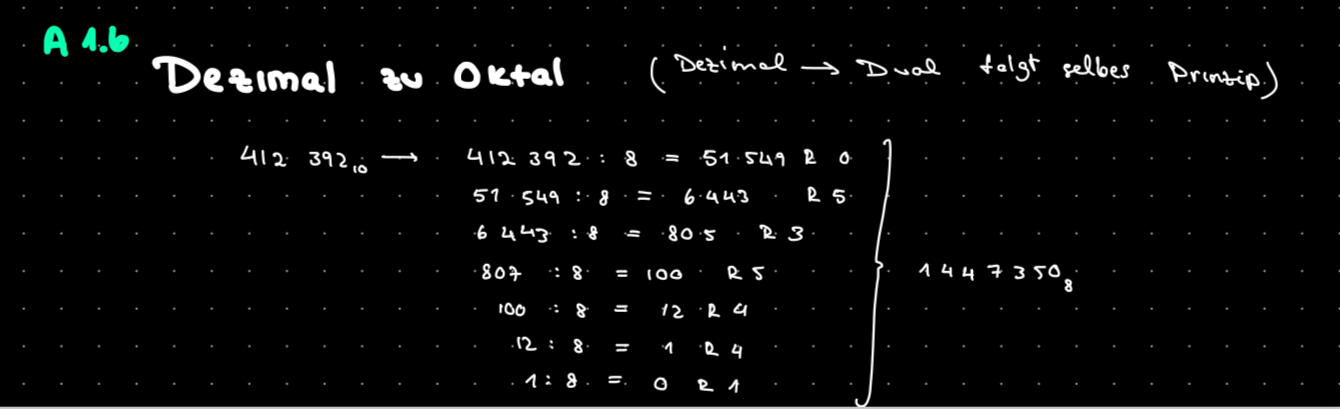 A 1.6
Dezimal zu Oktal (Dezimal → Dual folgt selbes Prinzip)
412 392₁₀ → 412 392 : 8 = 51 549 R 0
51 549 : 8 = 6 443 R 5
6 443 : 8 = 805 R 3
807 : 8 = 100 R 5
100 : 8 = 12 R 4
12 : 8 = 1 R 4
1 : 8 = 0 R 1
1447350₈